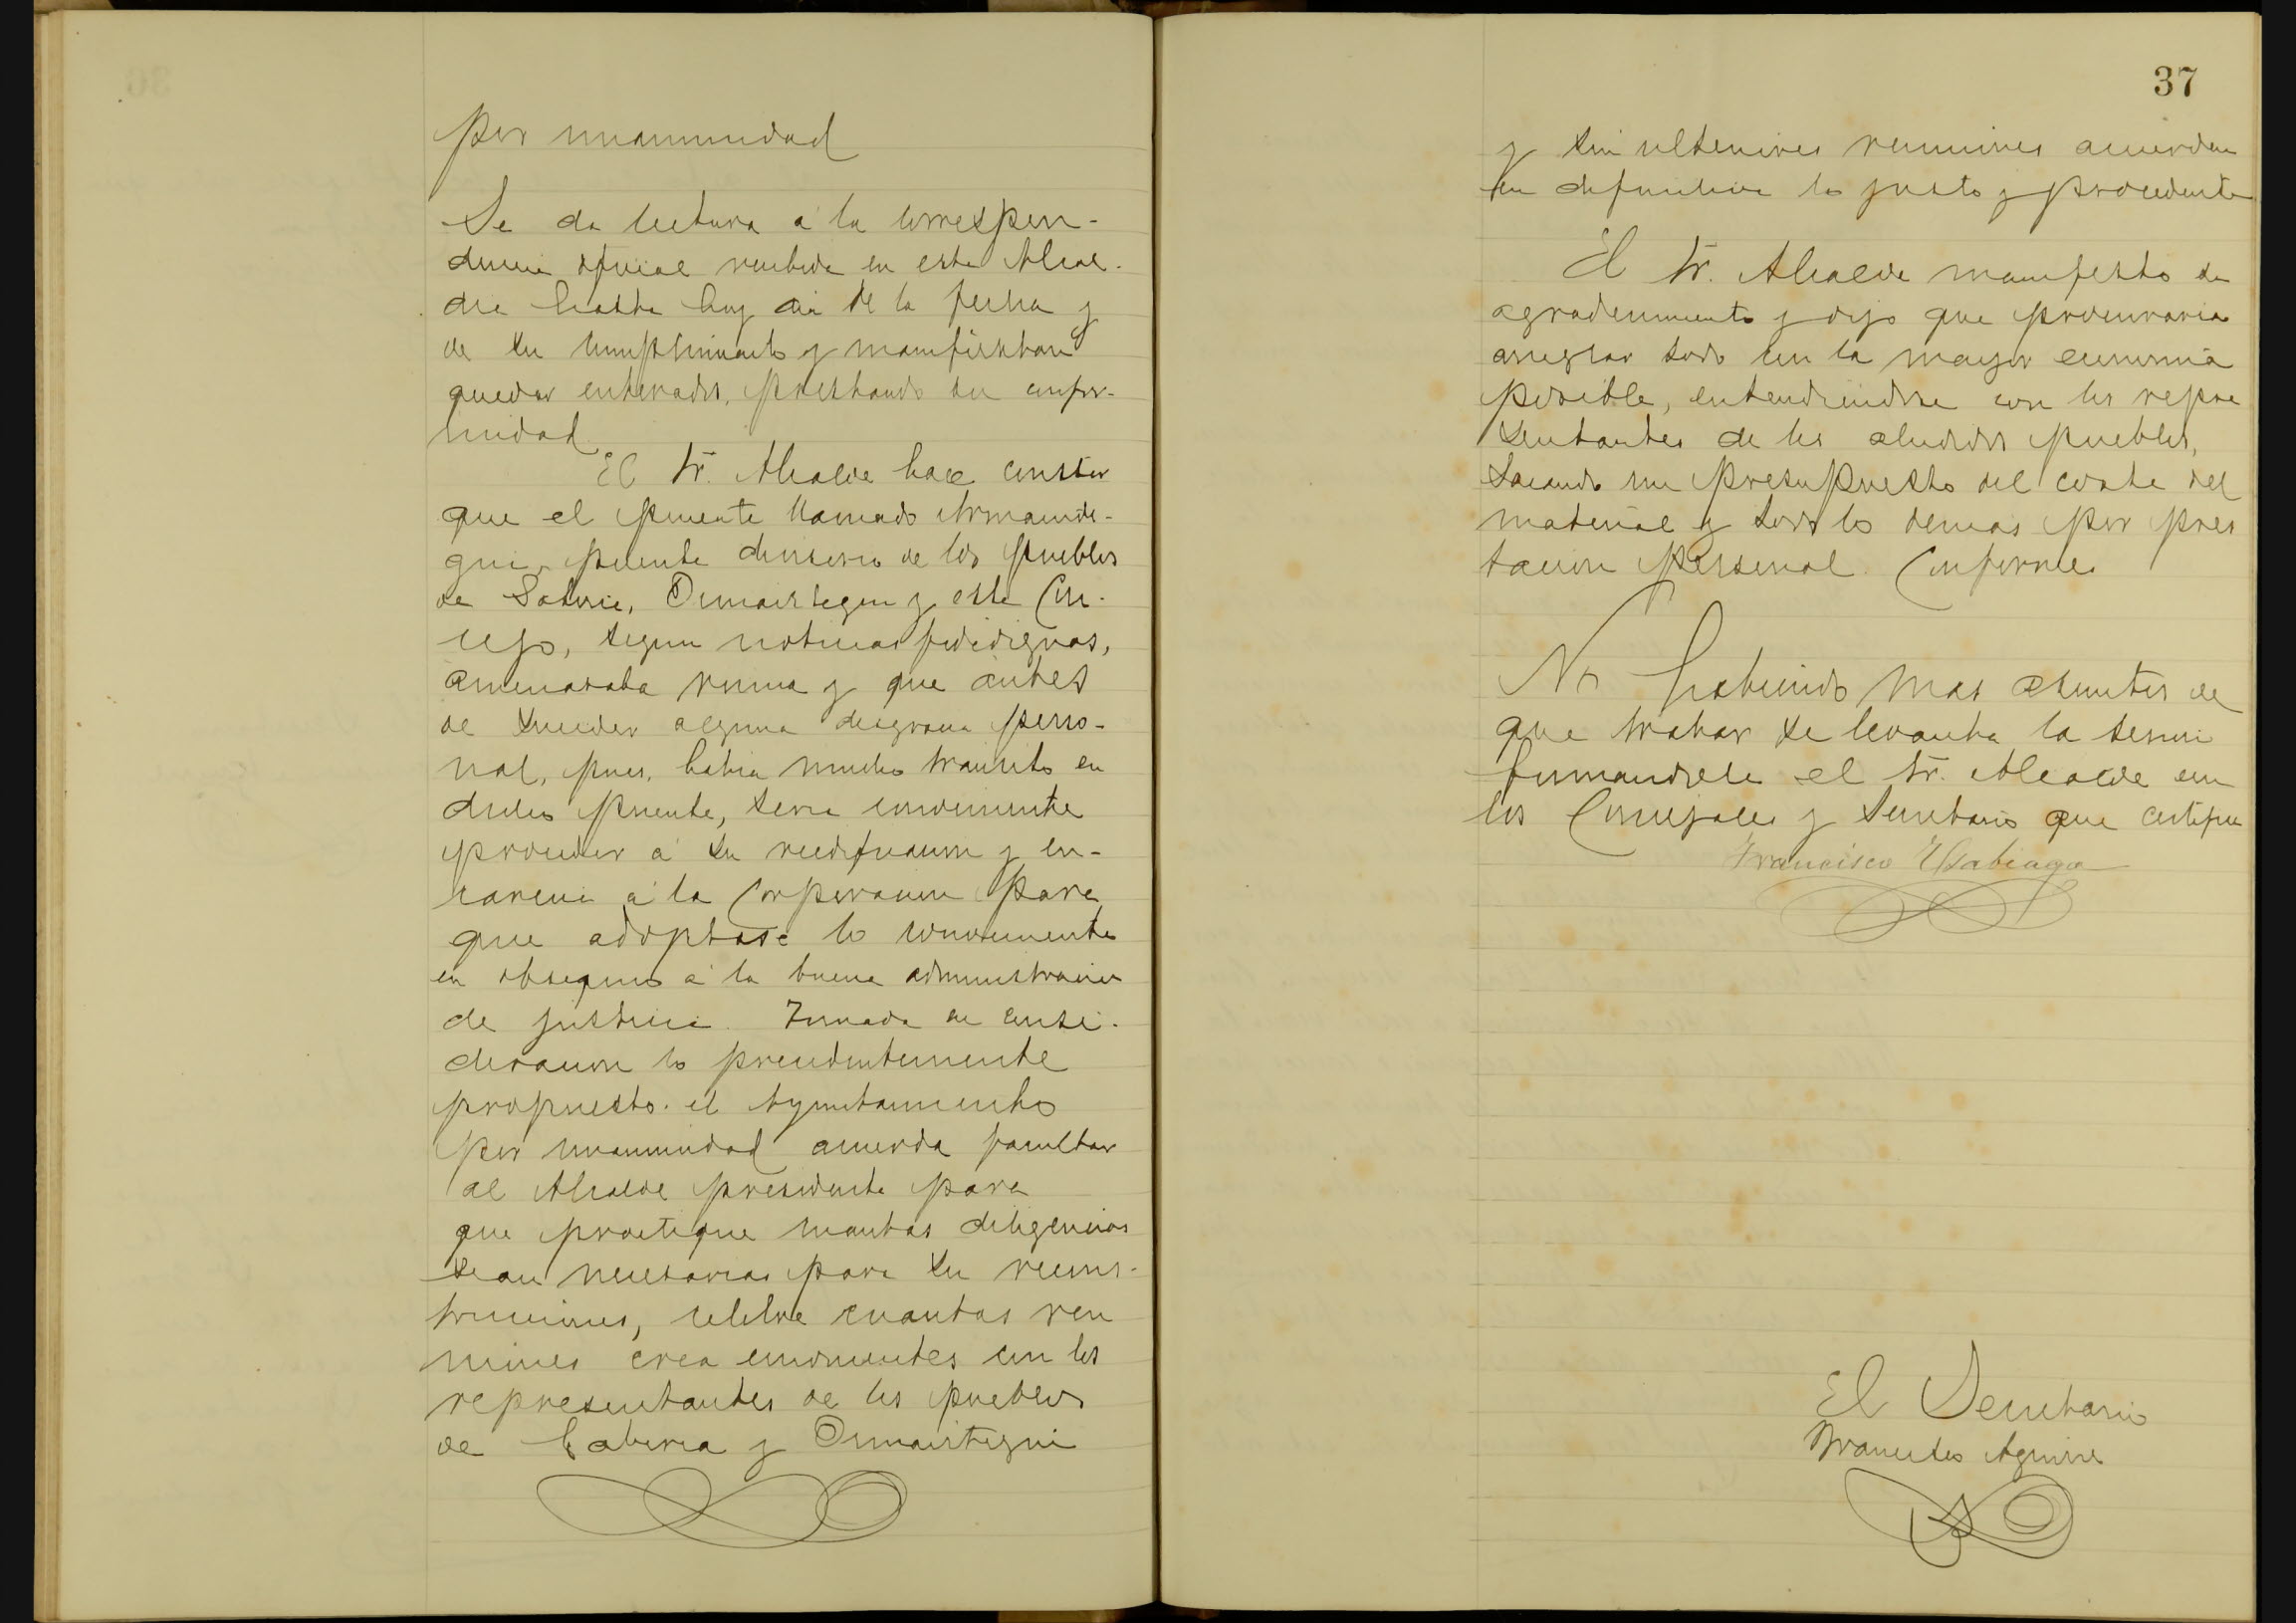 por unanimidad
Se da lectura á la correspon-
dencia oficial recibida en esta Alcal-
dia hasta hoy dia de la fecha y
de su cumplimiento y manifiestan
quedar enterados, prestando su confor-
midad
El Sr. Alcalde hace constar
que el puente llamado Armainde-
gui, puente divisorio de los pueblos
de Ormaistegui y este Con-
cejo, segun noticias fidedignas,
amenazaba ruina y que antes
de suceder alguna desgracia perso-
nal, pues, habia mucho transito en
dicho puente, seria conveniente
proceder á su reedificacion y en-
carecia á la Corporacion para
que adoptase lo conveniente
en obsequio á la buena administracion
de justicia. Tomada en consi-
deracion lo precedentemente
propuesto. el Ayuntamiento
por unanimidad acuerda facultar
al Alcalde presidente para
que practique cuantas diligencias
sean necesarias para su recons-
trucciones, celebre cuantas reu
niones crea convenientes con los
representantes de los pueblos
de Gabiria y Ormaistegui
37
y sin ulteriores reuniones acuerden
en definitiva lo justo y procedente
El Sr. Alcalde manifesto su
agradecimiento y dijo que procuraria
arreglar todo con la mayor economia
posible, entendiendose con los repre
sentantes de los aludidos pueblos,
sacando un presupuesto del coste del
material y todo lo demas por pres
tacion personal. Conformes
No habiendo mas asuntos de
que tratar se levanta la sesion
firmandole el Sr. Alcalde con
los Concejales y Secretario que certifica
Francisco Usabiaga
El Secretario
Aguirre